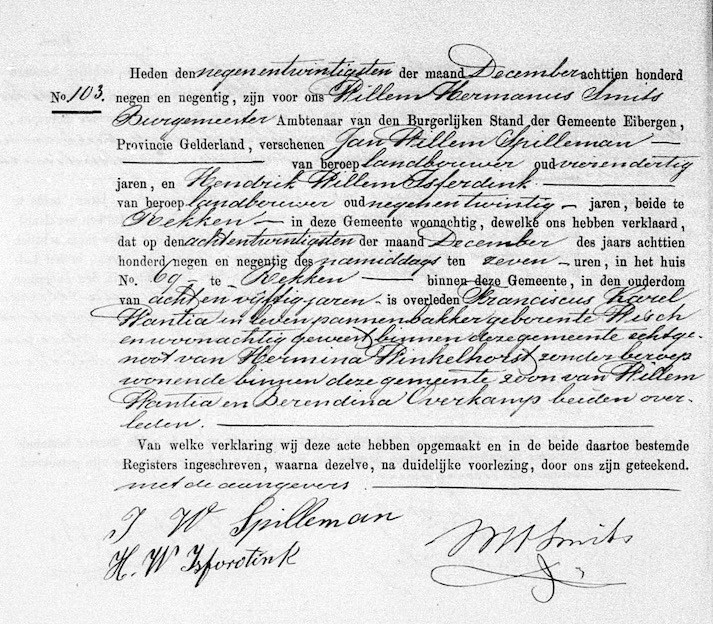 Heden den negenentwintigsten der maand December achttien honderd
No. 103. negen en negentig, zijn voor ons Willem Hermanus Smits
Burgemeester Ambtenaar van den Burgerlijken Stand der Gemeente Eibergen,
Provincie Gelderland, verschenen Jan Willem Spilleman —
van beroep landbouwer oud vierendertig
jaren, en Hendrik Willem Isferdink
van beroep landbouwer oud negenentwintig — jaren, beide te
Rekken — in deze Gemeente woonachtig, dewelke ons hebben verklaard,
dat op den achtentwintigsten der maand December des jaars achttien
honderd negen en negentig des namiddags ten zeven - uren, in het huis
No. 69 — te Rekken — binnen deze Gemeente, in den ouderdom
van acht en vijftig jaren - is overleden Franciscus Karel
Wantia in leven pannenbakker geboren te Wisch
en woonachtig geweest binnen deze gemeente echtge-
noot van Hermina Winkelhorst zonder beroep
wonende binnen deze gemeente zoon van Willem
Wantia en Berendina Overkamp beiden over-
leden.
Van welke verklaring wij deze acte hebben opgemaakt en in de beide daartoe bestemde
Registers ingeschreven, waarna dezelve, na duidelijke voorlezing, door ons zijn geteekend.
met de aangevers.
J W Spilleman
H. W Isfordink
WH Smits